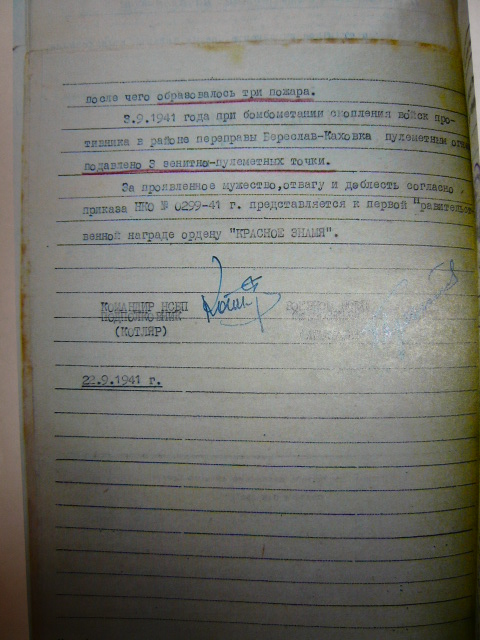 после чего образовалось три пожара.
3.9.1941 года при бомбометании скопления войск про-
тивника в районе переправы Береслав-Каховка пулеметным
подавлено 3 зенитно-пулеметных точки.
За проявленное мужество, отвагу и доблесть согласно
приказа НКО № 0299-41 г. представляется к первой
венной награде ордену "КРАСНОЕ ЗНАМЯ".
КОМАНДИР
ПОДПОЛКОВНИК
(КОТЛЯР)
22.9.1941 г.